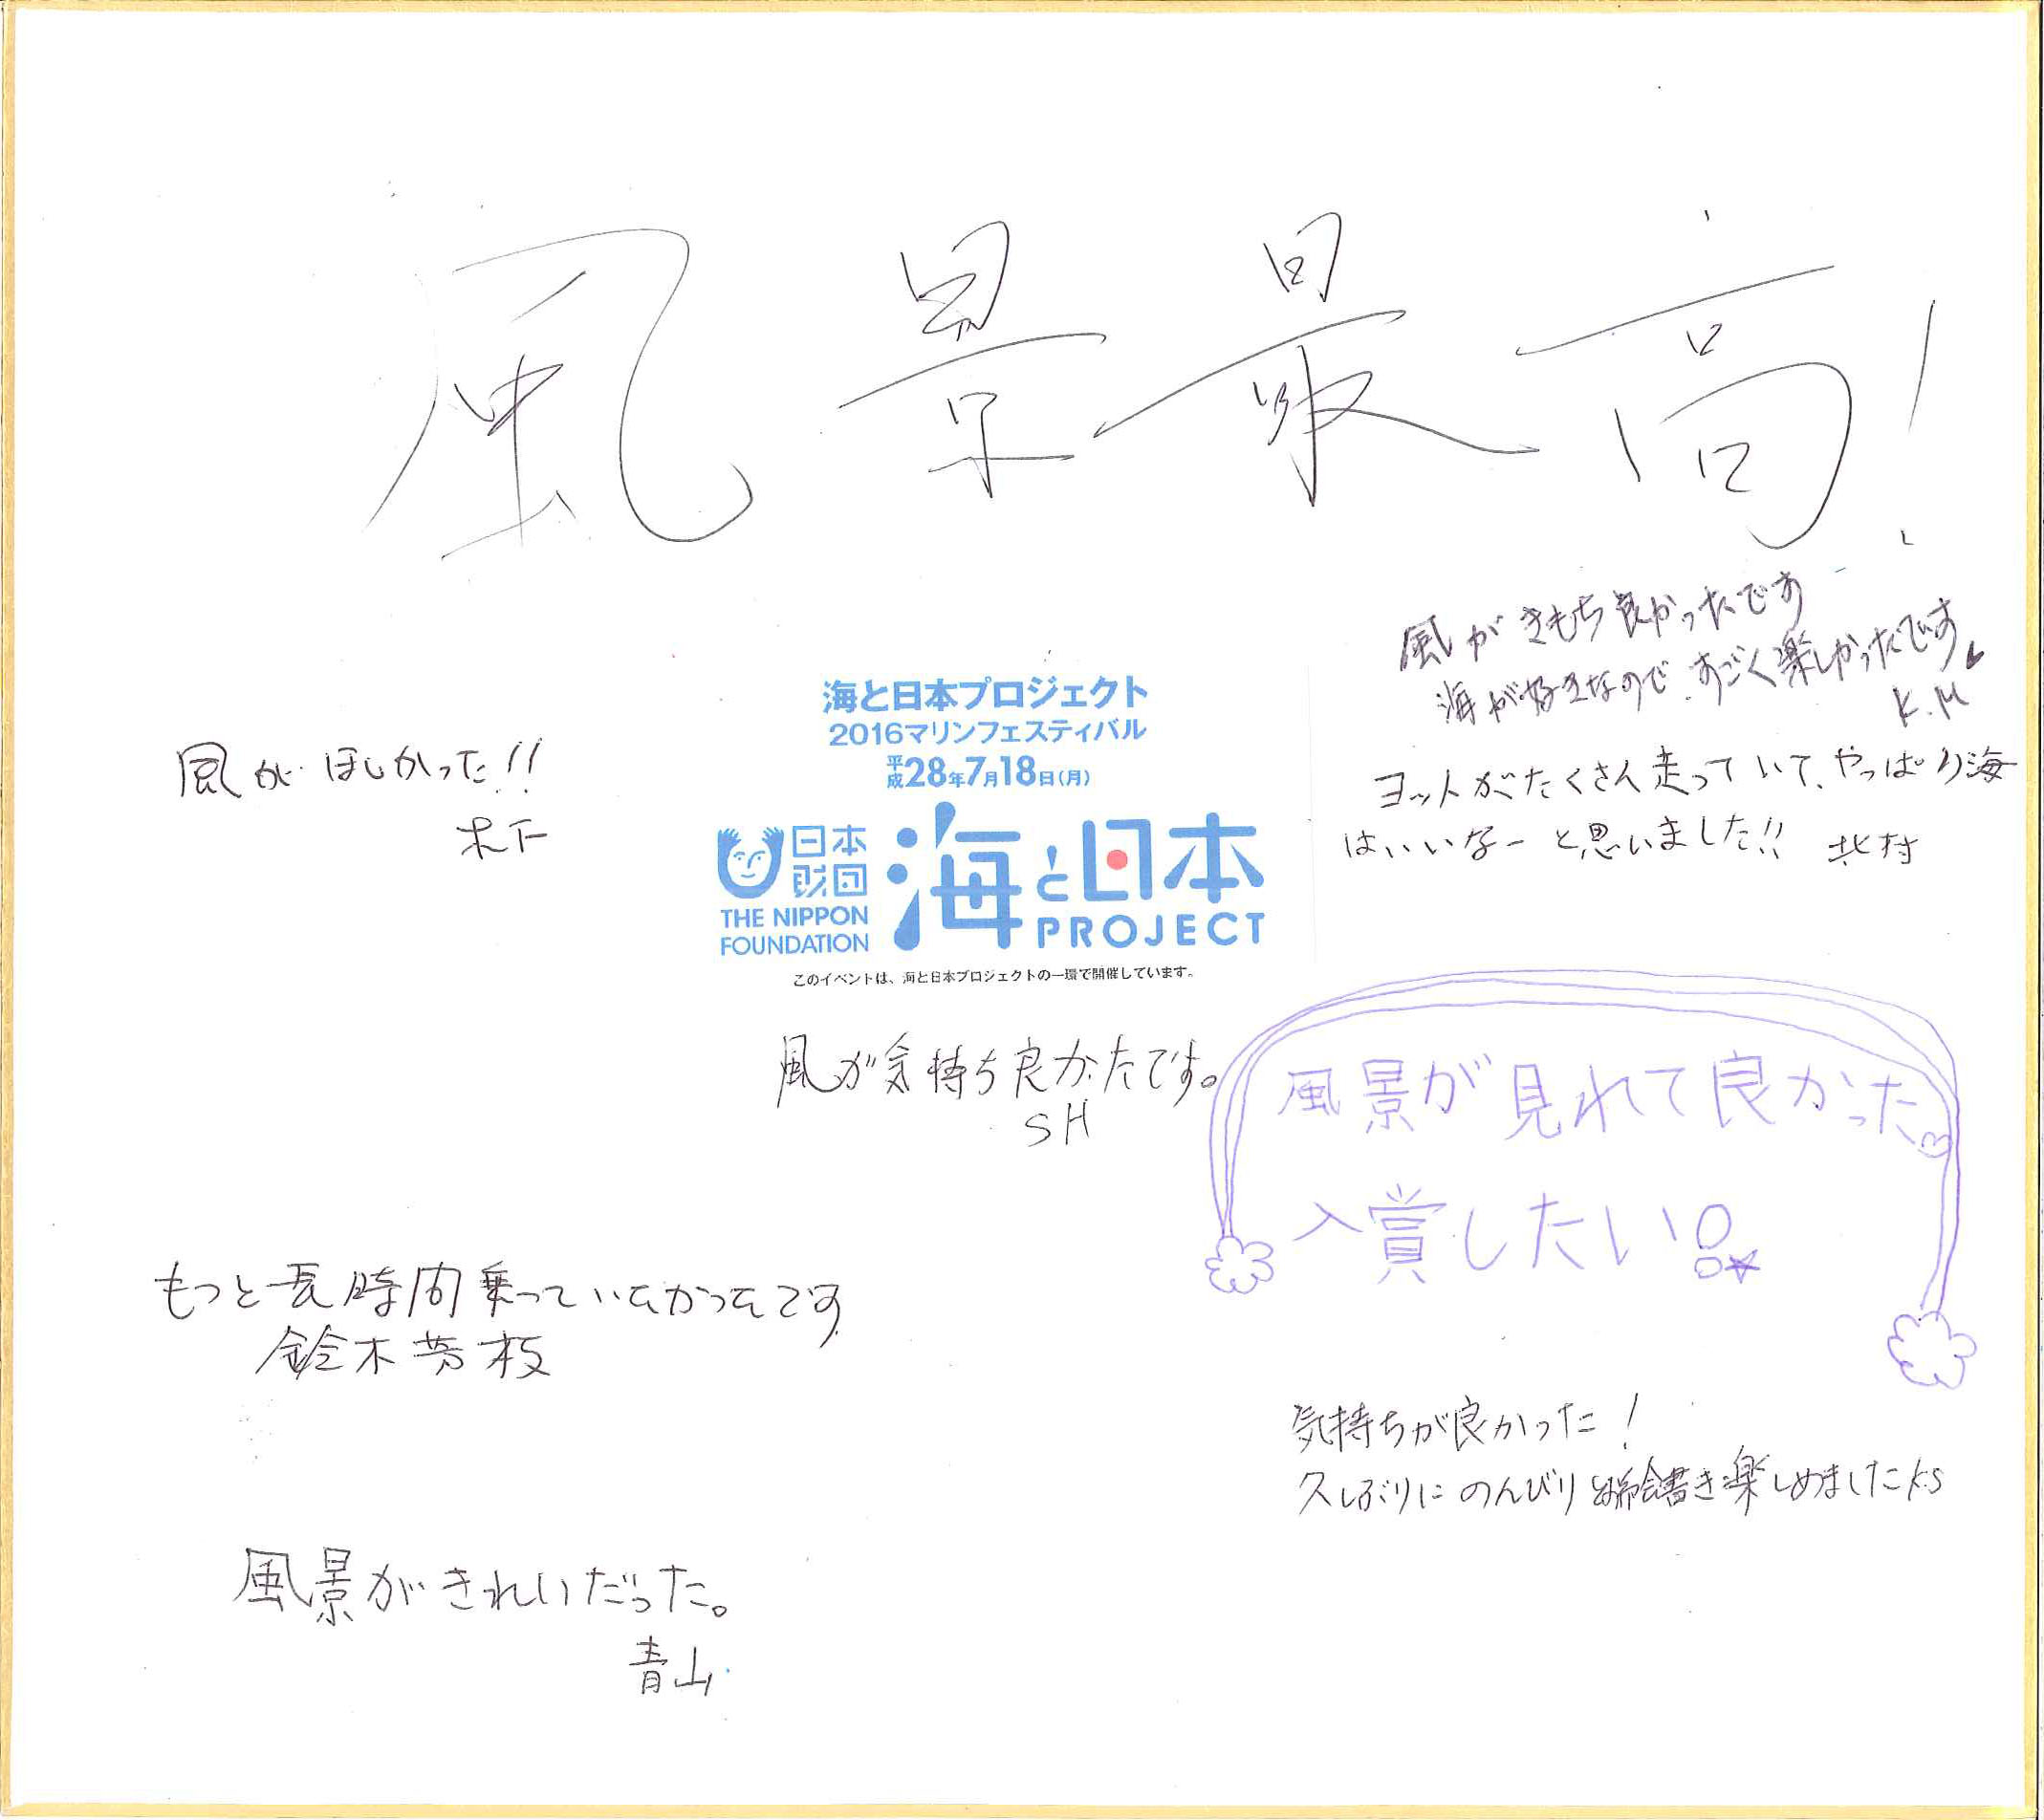 風景最高!
風がきもち良かったです
海が好きなので、すごく楽しかったです♥
K.M
風がほしかった!!
木下
海と日本プロジェクト
2016マリンフェスティバル
平成28年7月18日(月)
日本財団
THE NIPPON FOUNDATION
海と日本
PROJECT
このイベントは、海と日本プロジェクトの一環で開催しています。
ヨットがたくさん走っていて、やっぱり海
はいいなーと思いました!! 北村
風が気持ち良かたです。
SH
風景が見れて良かった
入賞したい!☆
もっと長時間乗っていたかったです
鈴木芳枝
気持ちが良かった!
久しぶりにのんびりとお絵書き楽しめました K.S
風景がきれいだった。
青山